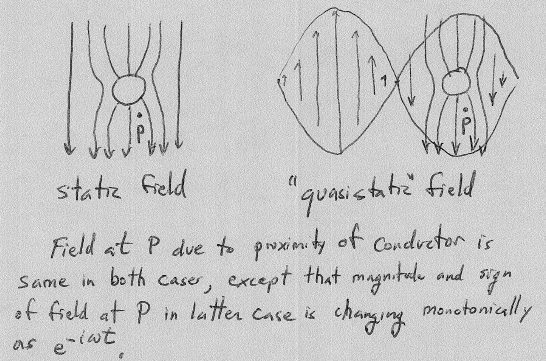 P
P
static field
"quasistatic" field
Field at P due to proximity of Conductor is
same in both cases, except that magnitude and sign
of field at P in latter case is changing monotonically
as e^-iωt.